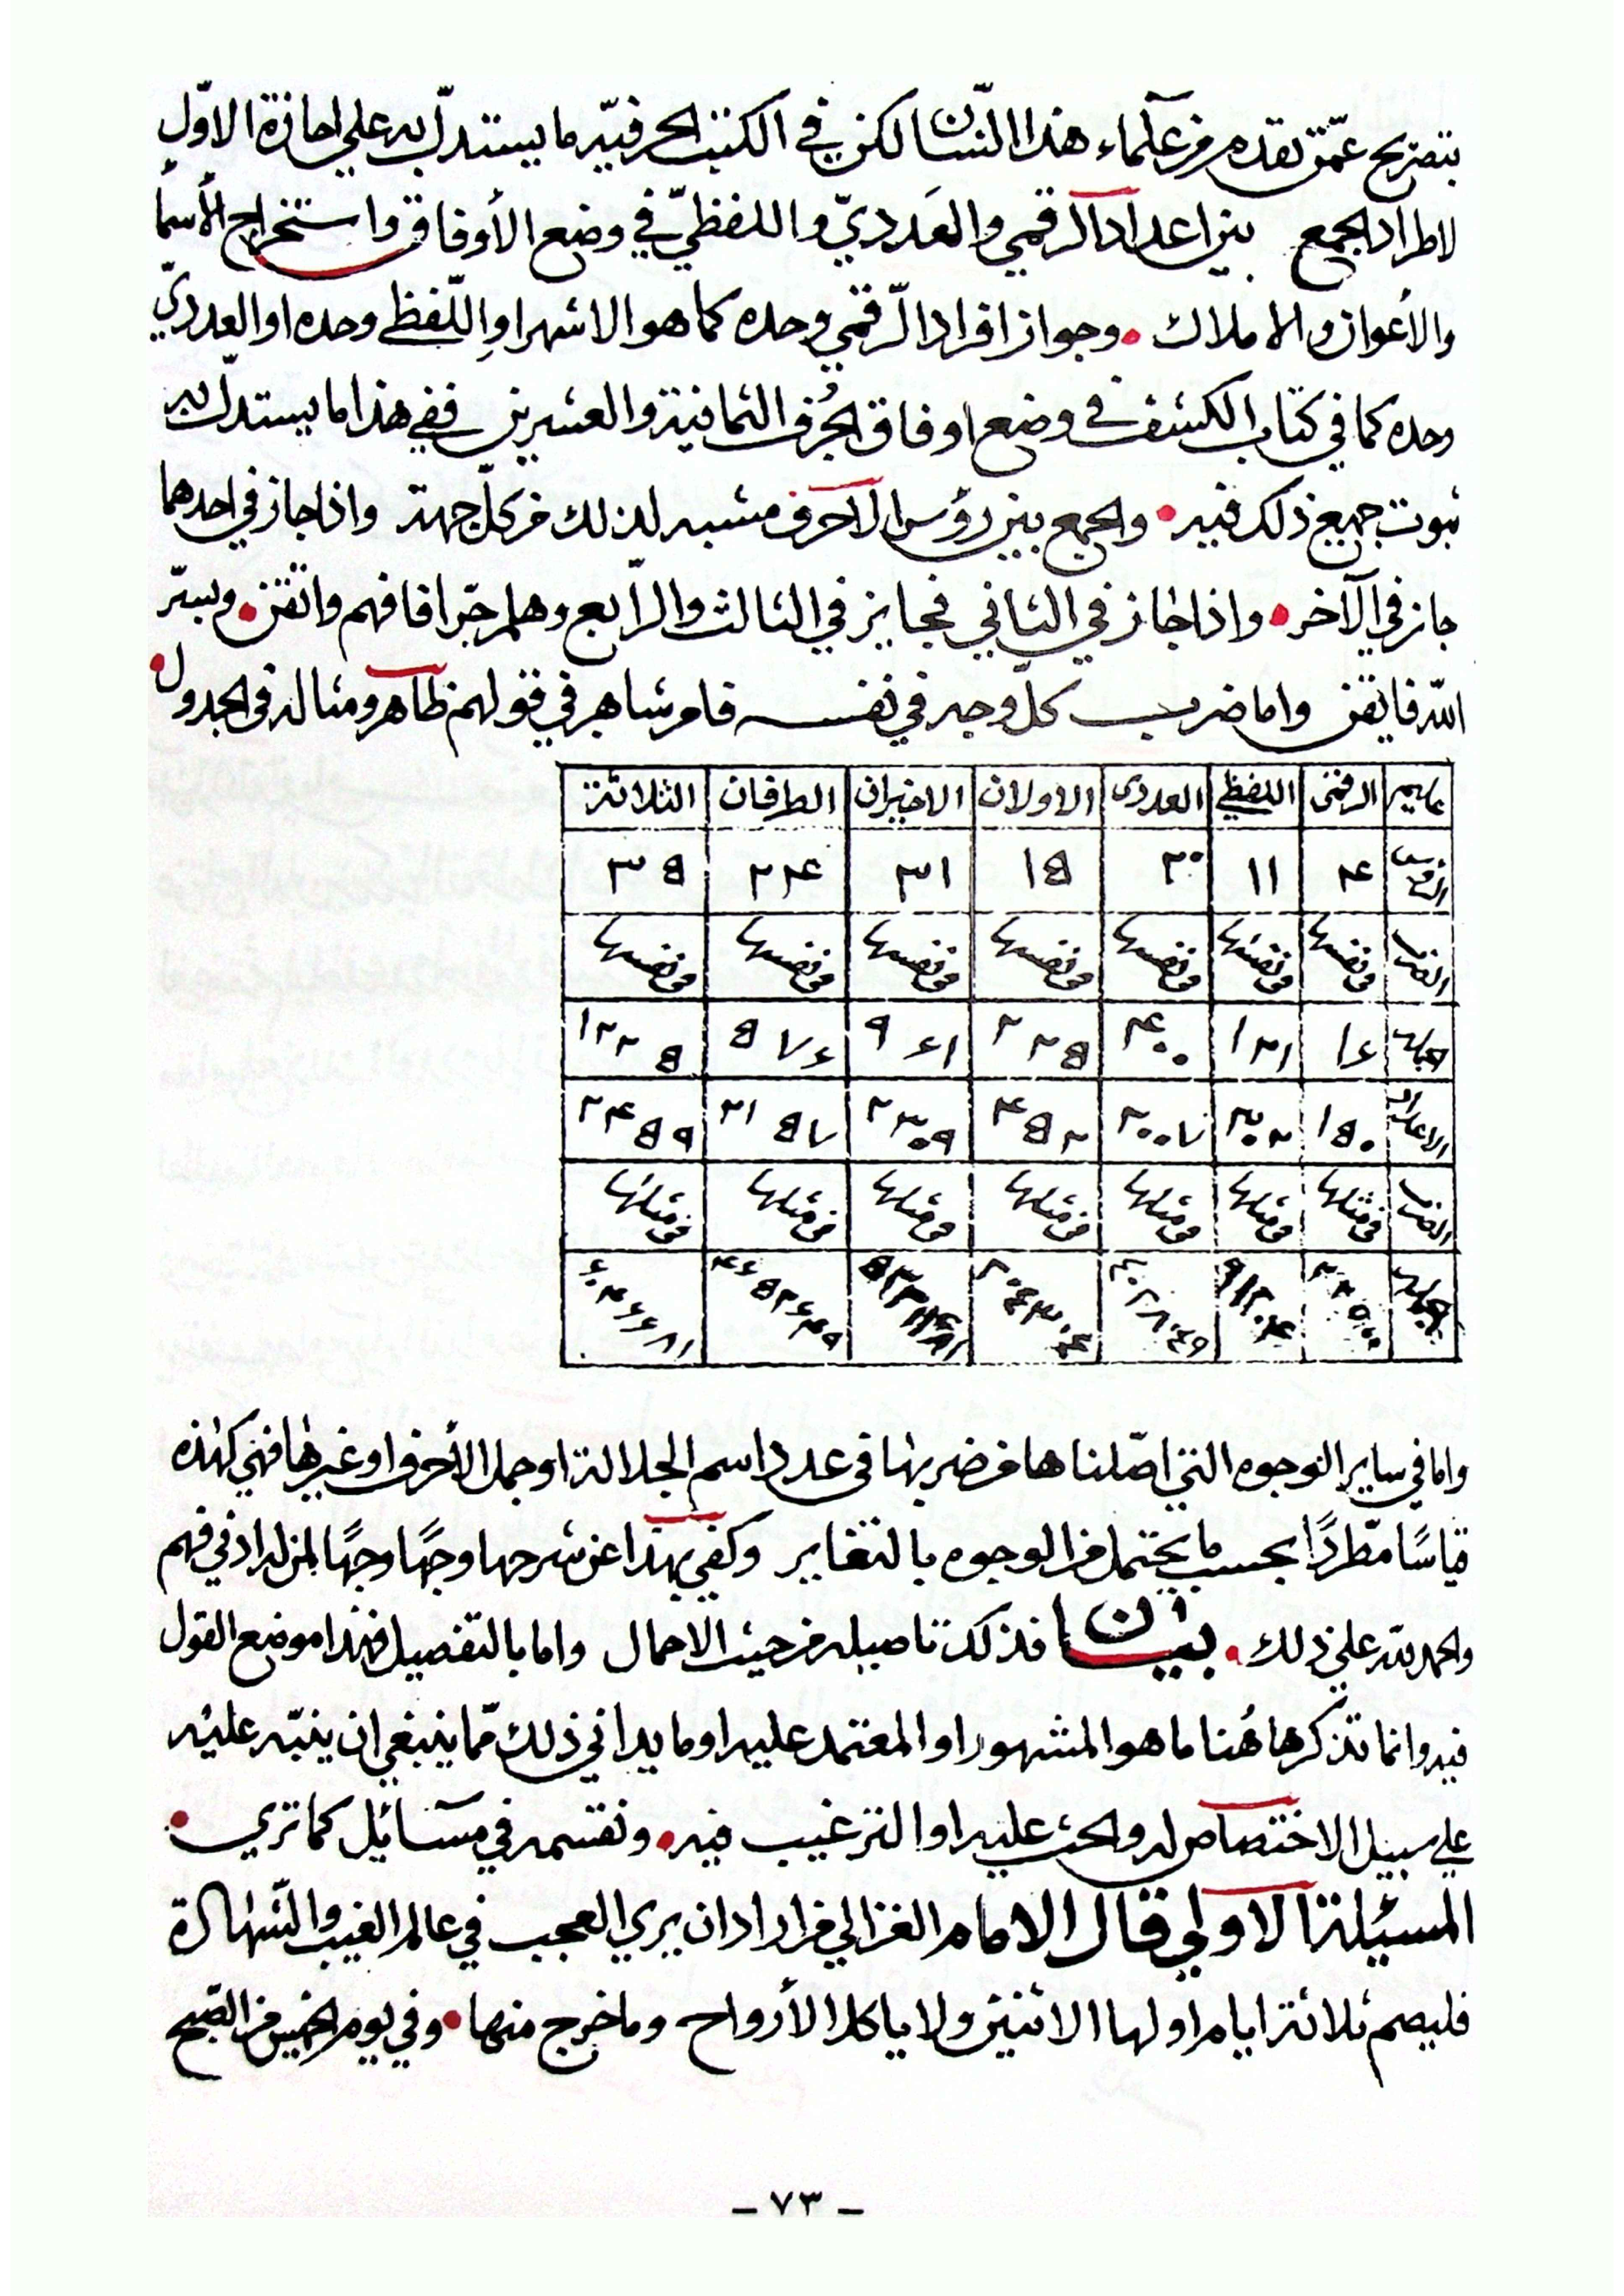 بتصريح عمّن تقدم من علماء هذا الشان لكن في الكتب الحرفيّه ما يستدلّ به علي اجازة الاوّل
لاطراد الجمع بين اعداد الرقمي والعَدديّ واللفظيّ في وضع الأوفاق واستخراج الأسمأ
والأعوان والاملاك • وجواز افراد الرّقمي وحده كما هو الاشهر اوِ اللّفظي وحده او العدديّ
وحده كما في كتاب الكشف في وضع اوفاق الحُرف الثمانية والعشرين ففي هذا ما يستدلّ به
ثبوت جميع ذلك فيه • والجمع بين رؤس الاحرف مشبه لذلك من كلّ جهة واذا جاز في احدهما
جاز في الآخر • واذا جاز في الثاني فجايز في الثالث والرّابع وهلم جّرا فافهم واتقن • وبسّر
اللّه فايقن واما ضرب كلّ وجه في نفسه فامر شاهر في قولهم ظاهر ومثاله في الجدول •
الرقمى اللفظي العددى الاولان الاخيران الطرفان الثلاثة
۴ ١١ ٢٠ ١۵ ٣١ ٢۴ ٣۵
الضرب في نفسها في نفسها في نفسها في نفسها في نفسها في نفسها في نفسها
١۶ ١٢١ ۴٠٠ ٢٢۵ ٩۶١ ۵٧۶ ١٢٢۵
١۵٠ ٣٠٢ ٢٠٠٧ ۴۵٢ ٢٣٠٩ ٢١۵٧ ٢۴۵٩
الضرب في مثلها في مثلها في مثلها في مثلها في مثلها في مثلها في مثلها
٢٢۵٠٠ ٩١٢٠۴ ۴٠٢٨٠۴٩ ٢٠۴٣٠۴ ۵٣٣١۴٨١ ۴۶۵٢۶۴٩ ۶٠۴۶۶٨١
واما في ساير الوجوه التي اصّلناها من ضربها في عدد اسم الجلالة او جمل الأحرف او غيرها فهي كهٰذه
قياسًا مطّردًا بحسب ما يحتمل من الوجوه بالتغاير وكفي بهذا عن شرحها وجهًا وجهًا لمن له ادني فهم
والحمد للّه علي ذلك • بيان فذلك تاصيله من حيث الاجمال واما بالتفصيل فهٰذا موضع القول
فيه وانما نذكر هاهُنا ما هو المشهور او المعتمد عليه او ما يداني ذلك ممّا ينبغي ان ينبّه عليه
علي سبيل الاختصاص له والحث عليه او الترغيب فيه • ونقسمه في مسآئل كما تري •
المسئلة الاولي قال الامام الغزالي من اراد ان يري العجب في عالم الغيب والشّهادة
فليصم ثلاثة ايام اولها الاثنين ولا ياكل الأرواح وما خرج منها • وفي يوم الخميس من الصّبح
– ٧٣ –